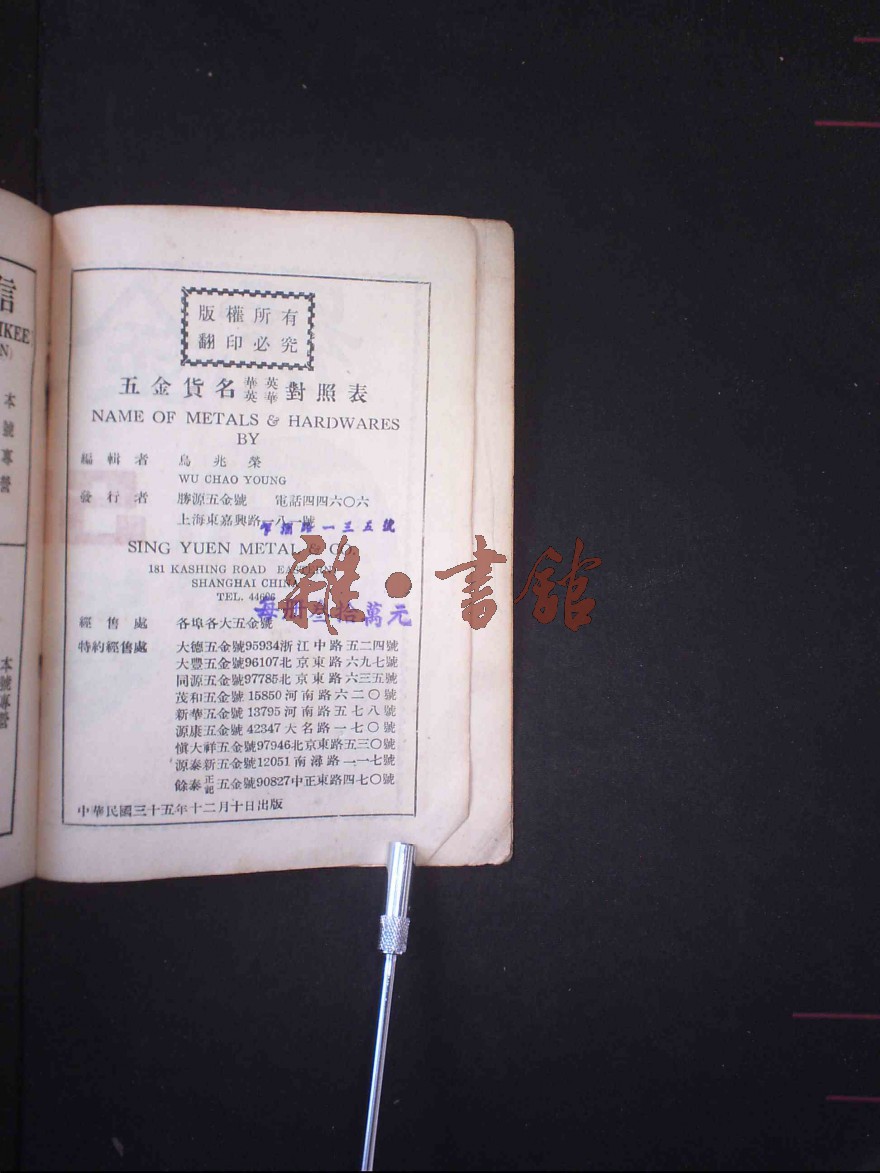 版權所有
翻印必究
五金貨名 華英 英華 對照表
NAME OF METALS & HARDWARES
BY
編輯者 烏兆榮
WU CHAO YOUNG
發行者 勝源五金號 電話四四六〇六
上海東嘉興路一八一號
乍浦路一三五號
SING YUEN METAL & CO.
181 KASHING ROAD EASTERN
SHANGHAI CHINA
TEL. 44606
每冊叁拾萬元
經售處 各埠各大五金號
特約經售處 大德五金號95934浙江中路五二四號
大豐五金號96107北京東路六九七號
同源五金號97785北京東路六三五號
茂和五金號15850河南路六二〇號
新華五金號13795河南路五七八號
源康五金號42347大名路一七〇號
愼大祥五金號97946北京東路五三〇號
源泰新五金號12051南潯路一一七號
餘泰正記五金號90827中正東路四七〇號
中華民國三十五年十二月十日出版
雜·書館
信
IKEE
N)
本號專營
本號專營